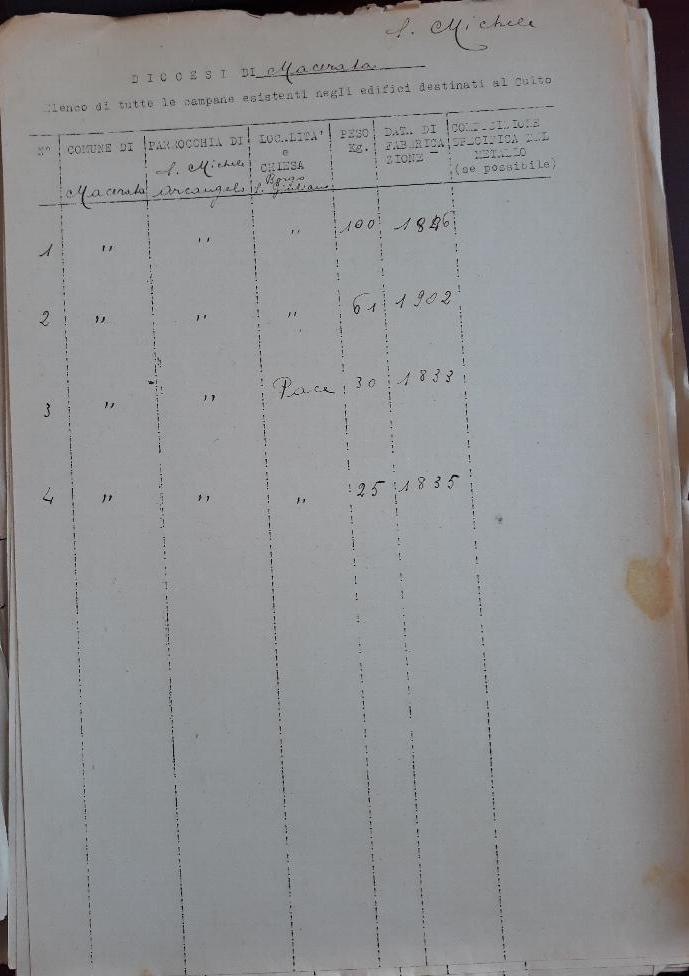 S. Michele
DIOCESI DI Macerata
Elenco di tutte le campane esistenti negli edifici destinati al Culto
N° COMUNE DI PARROCCHIA DI LOCALITA' PESO DATA DI COMPOSIZIONE
S. Michele e Kg. FABBRICA SPECIFICA DEL
CHIESA ZIONE METALLO
Macerata Arcangelo Borgo (se possibile)
S. Giuliano
1 " " " 100
2 " " " 61 1902
3 " " Pace 30 1833
4 " " " 25 1835